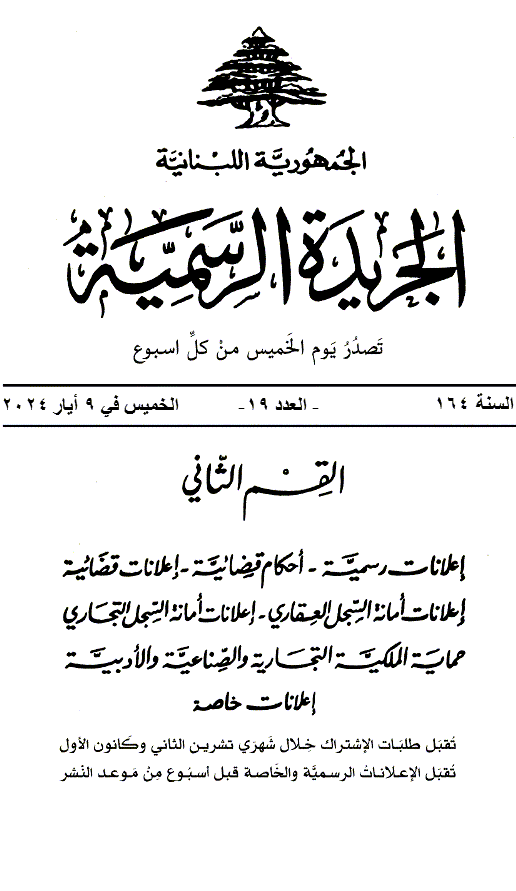 الجمهورية اللبنانية
الجريدة الرسمية
تَصدُرُ يَوم الخَميس منْ كلِّ اسبوع
السنة ١٦٤ - العدد ١٩- الخميس في ٩ أيار ٢٠٢٤
القِسْم الثّاني
إعلانات رسميَّة - أحكام قضائيَّة - إعلانات قضائية
إعلانات أمانة السِّجل العقاري - إعلانات أمانة السِّجل التجاري
حماية الملكيَّة التجارية والصِّناعيَّة والأدبيَّة
إعلانات خاصة
تُقبَل طلبَات الإشتراك خِلال شَهرَي تشرين الثاني وكَانون الأول
تُقبَل الإعلانات الرسميَّة والخَاصة قبل أسبُوع مِنْ مَوعد النّشر